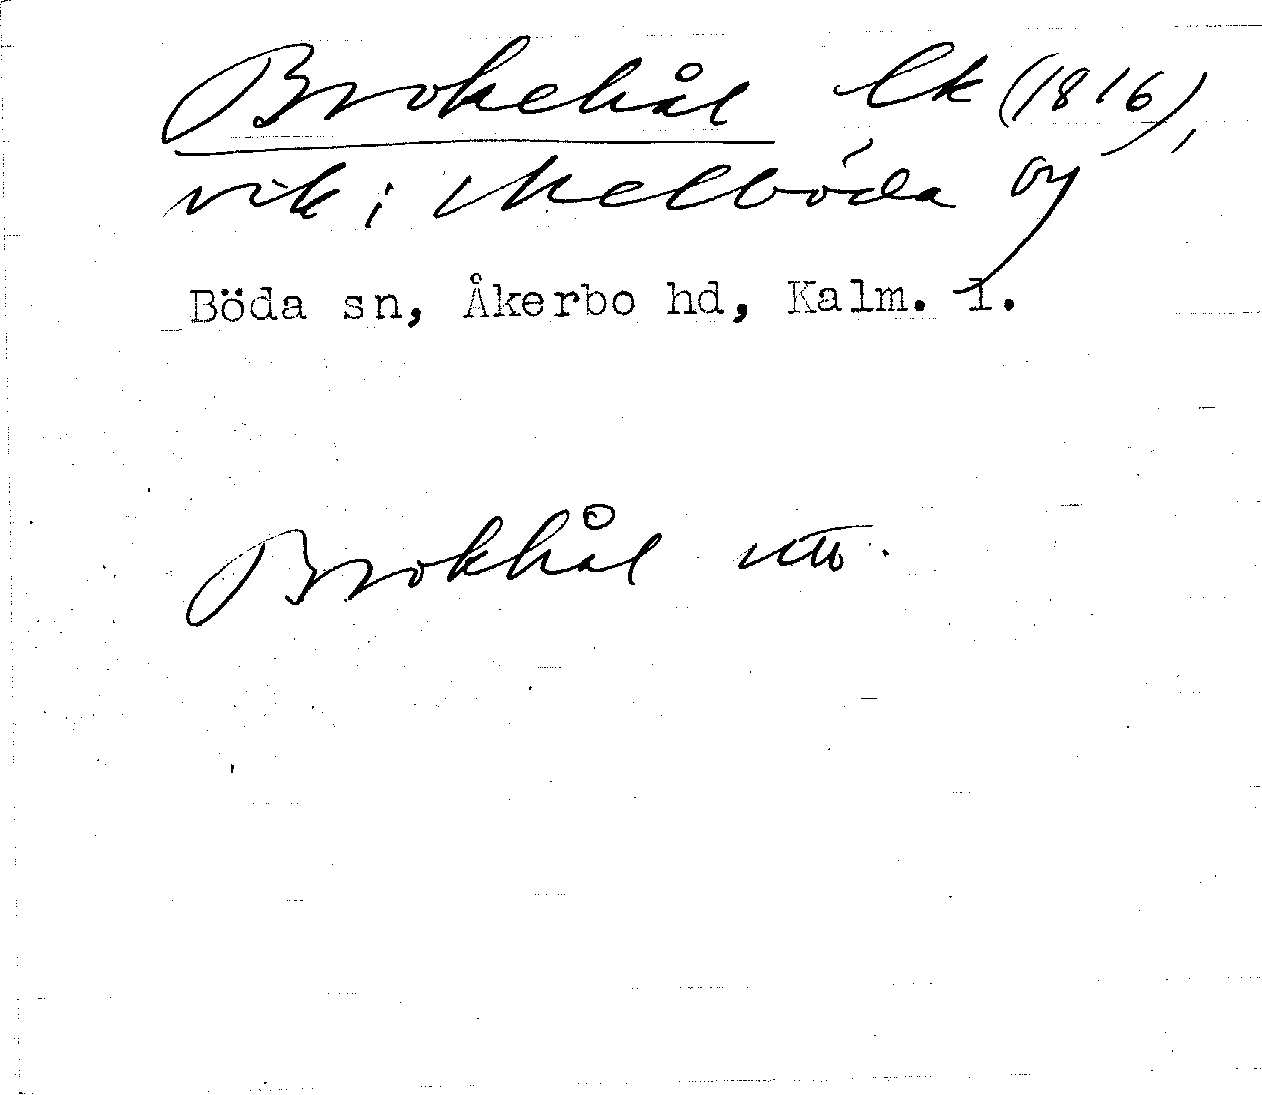 Brokehål Ek (1816),
vik i Melböda by
Böda sn, Åkerbo hd, Kalm. l.
Brokhål utt.